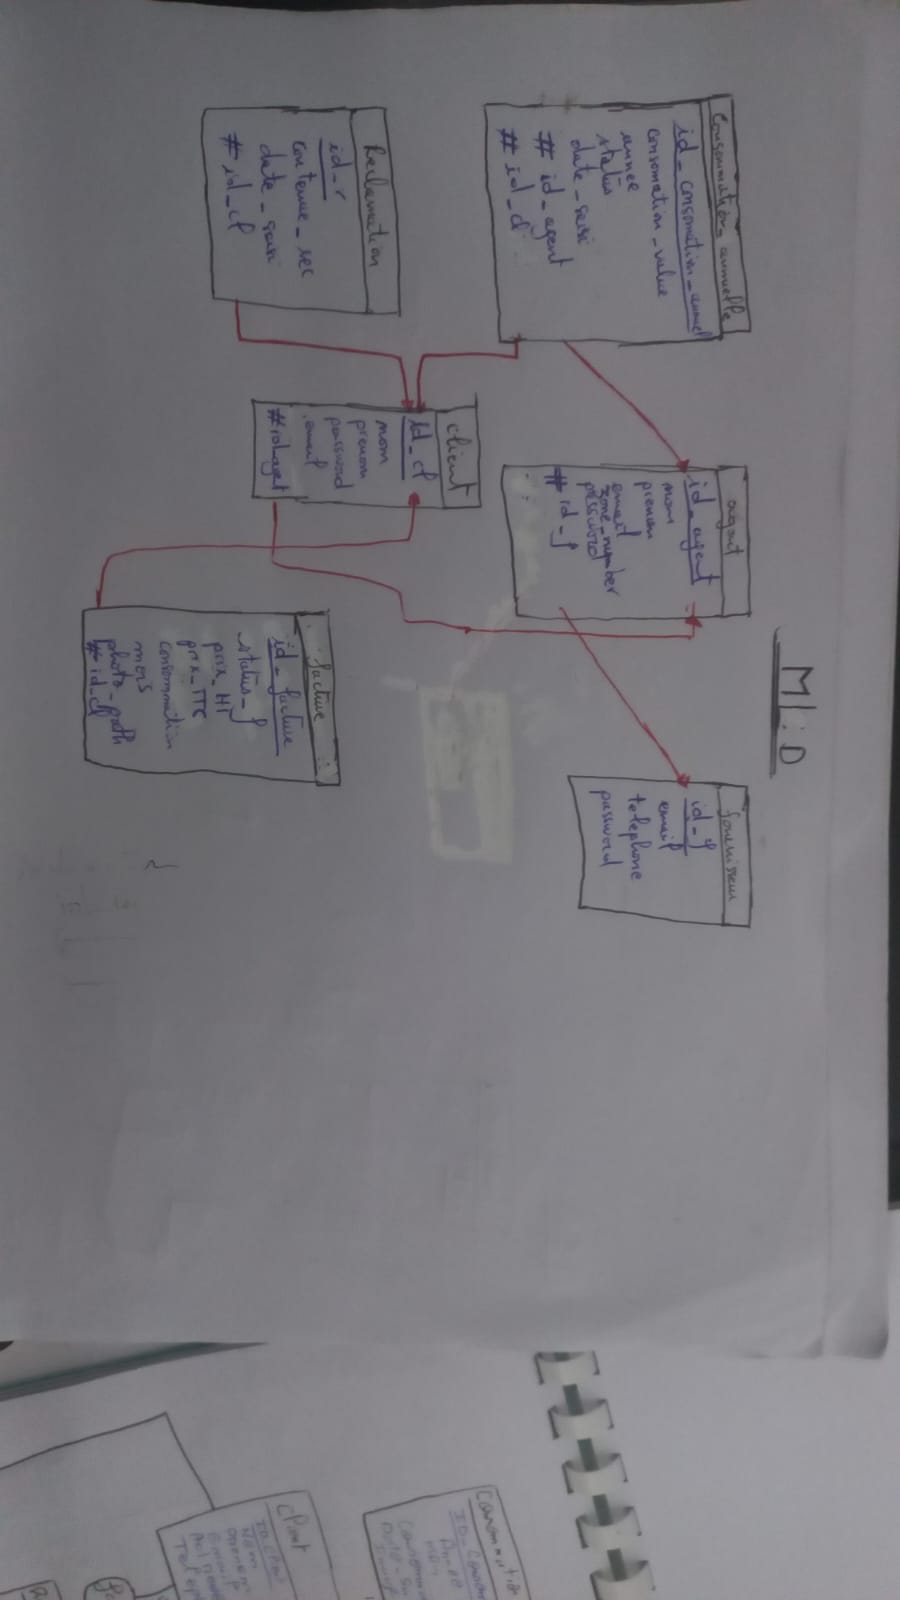 MLD
Consommation_annuelle
id_consomation_annuel
consomation_value
annee
status
date_saisi
# id_agent
# id_cl
agent
id_agent
nom
prenom
email
zone_number
password
# id_f
fournisseur
id_f
email
telephone
password
client
id_cl
nom
prenom
password
email
Reclamation
id_r
contenue_rec
date_saisi
# id_cl
facture
id_facture
status_f
prix_HT
prix_TTC
consommation
mois
photo_path
# id_cl
Consommation
Client
ID_Client
Nom
Prenom
Email